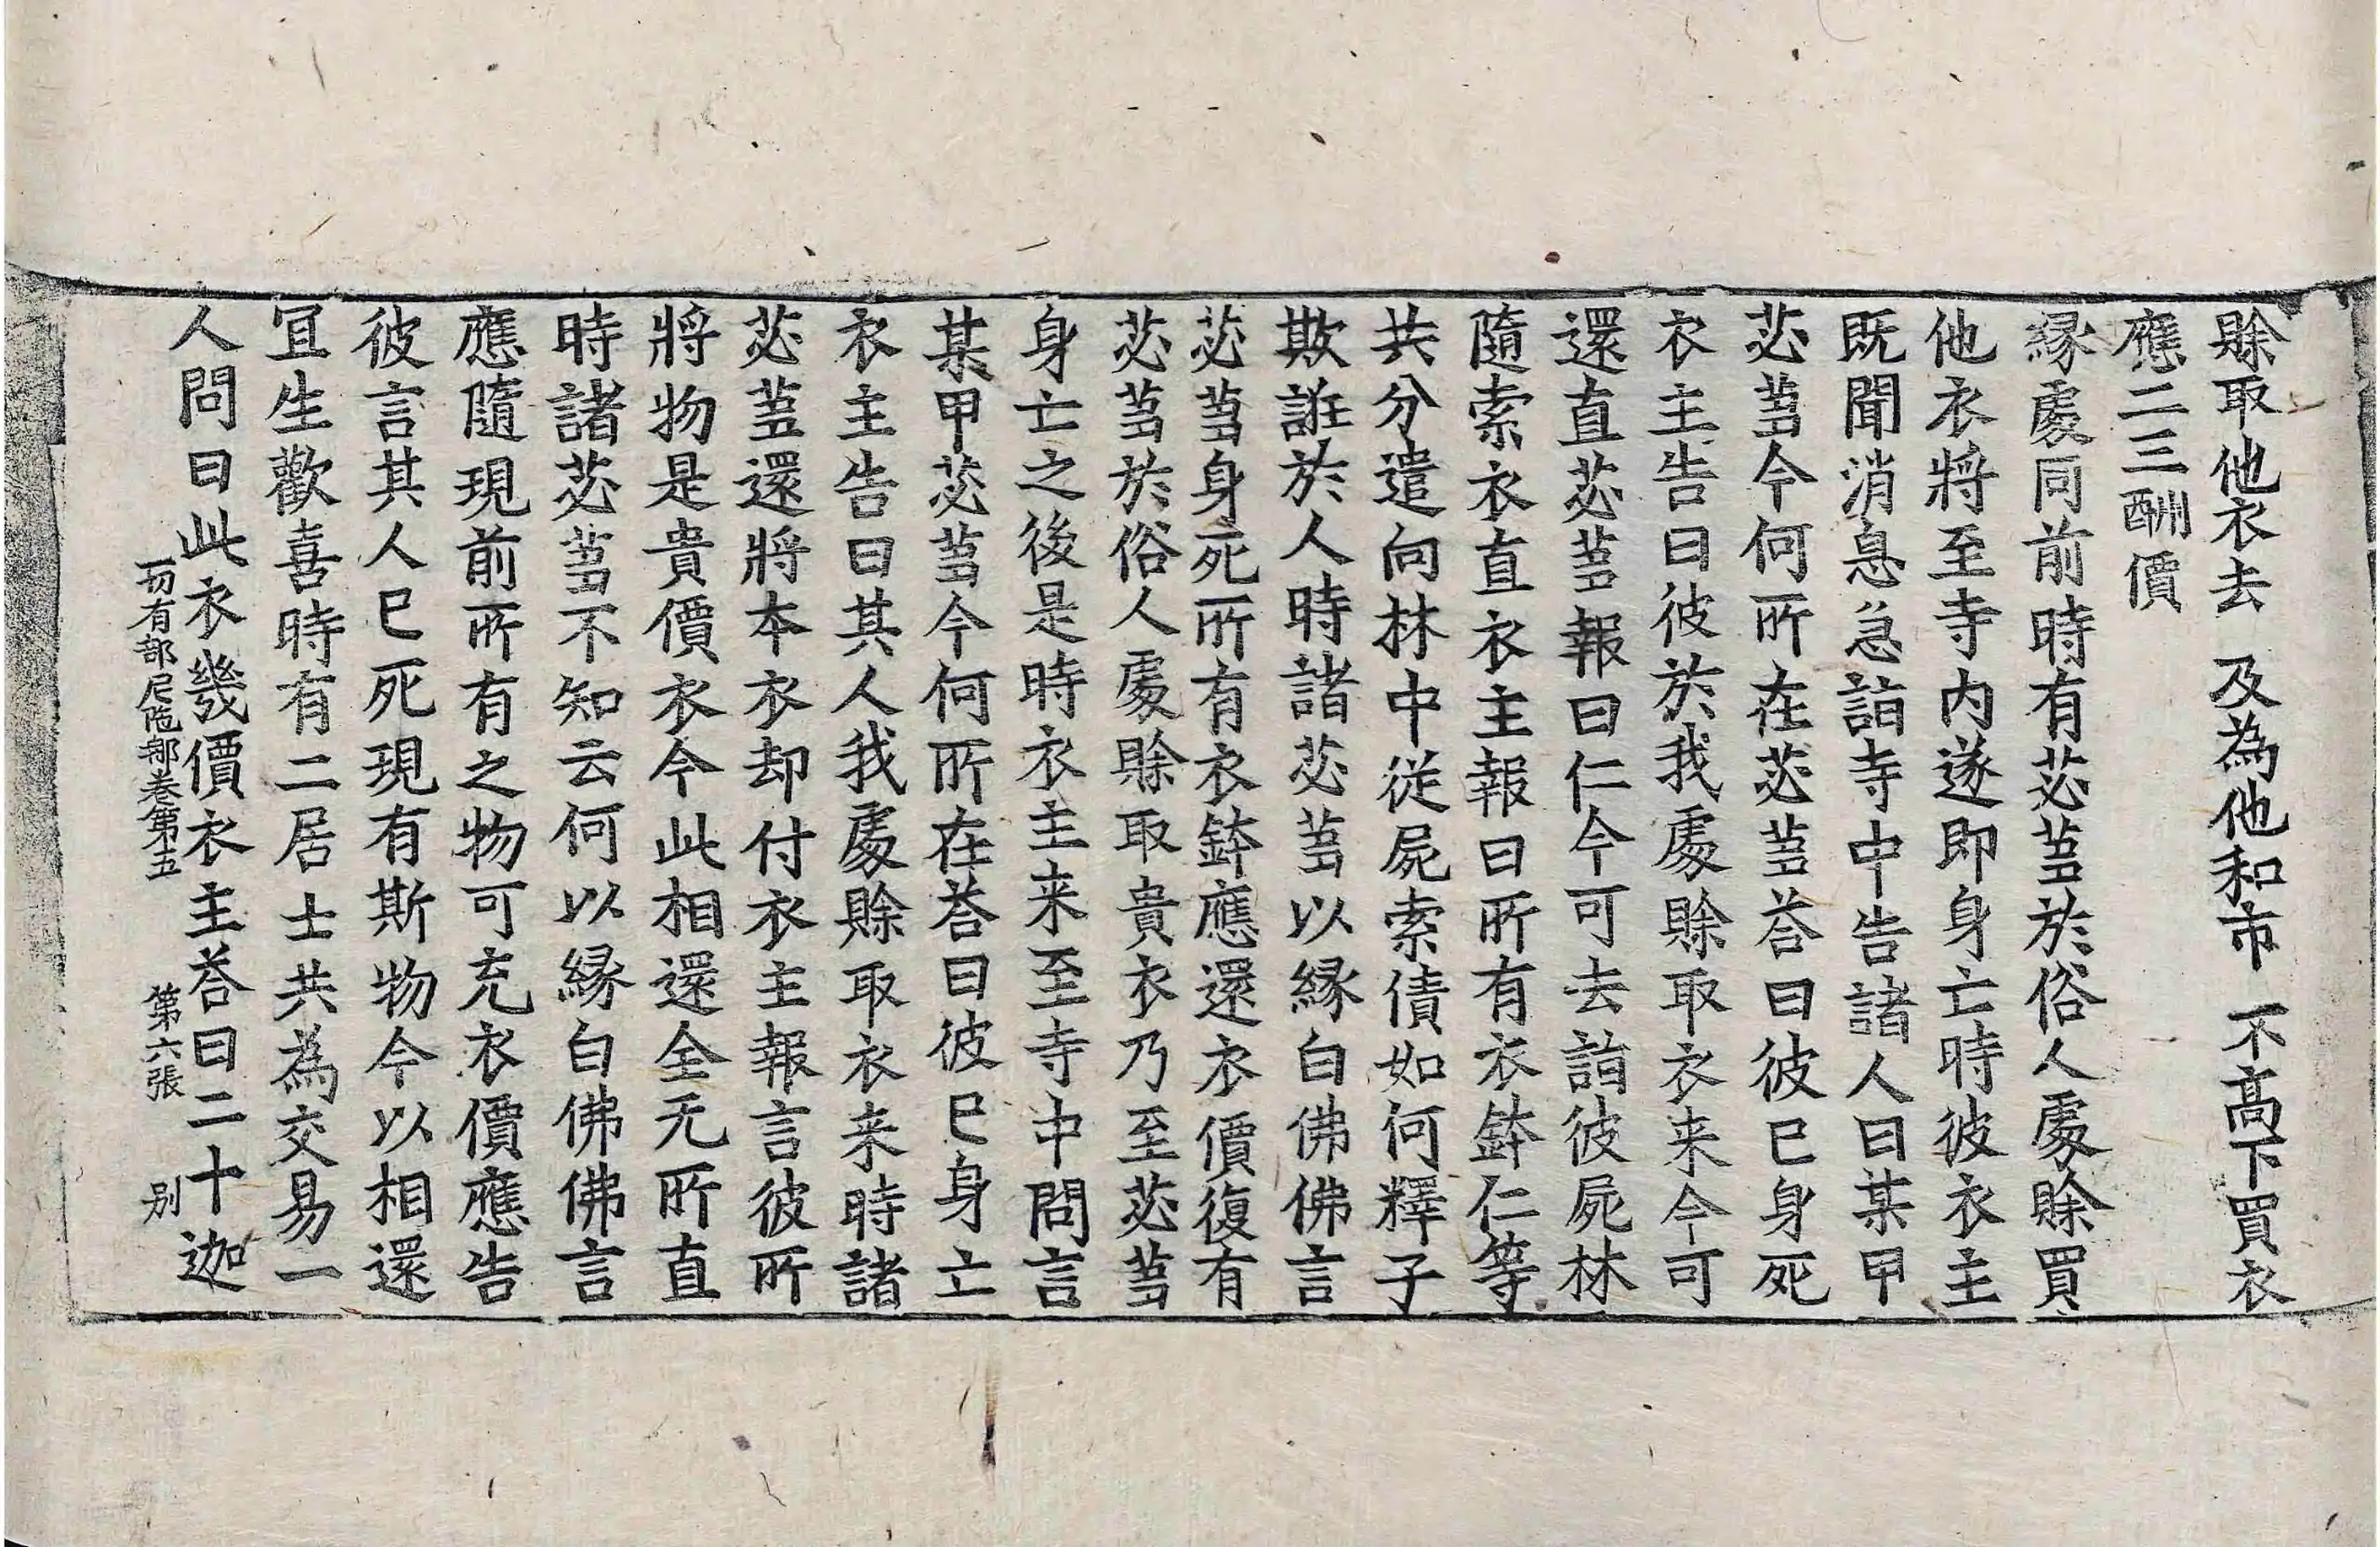 賖取他衣去 及為他和市 不髙下買衣
應二三酬價
縁處同前時有苾蒭於俗人處賖買
他衣將至寺内遂即身亡時彼衣主
既聞消息急詣寺中告諸人曰某甲
苾蒭今何所在苾蒭荅曰彼已身死
衣主告曰彼於我處賖取衣来今可
還直苾蒭報曰仁今可去詣彼屍林
隨索衣直衣主報曰所有衣鉢仁等
共分遣向林中從屍索債如何釋子
欺誑於人時諸苾蒭以縁白佛佛言
苾蒭身死所有衣鉢應還衣價復有
苾蒭於俗人處賖取貴衣乃至苾蒭
身亡之後是時衣主来至寺中問言
某甲苾蒭今何所在荅曰彼已身亡
衣主告曰其人我處賖取衣来時諸
苾蒭還將本衣却付衣主報言彼所
將物是貴價衣今此相還全无所直
時諸苾蒭不知云何以縁白佛佛言
應隨現前所有之物可充衣價應告
彼言其人已死現有斯物今以相還
冝生歡喜時有二居士共為交易一
人問曰此衣幾價衣主荅曰二十迦
一切有部尼陁那卷第五 第六張 别